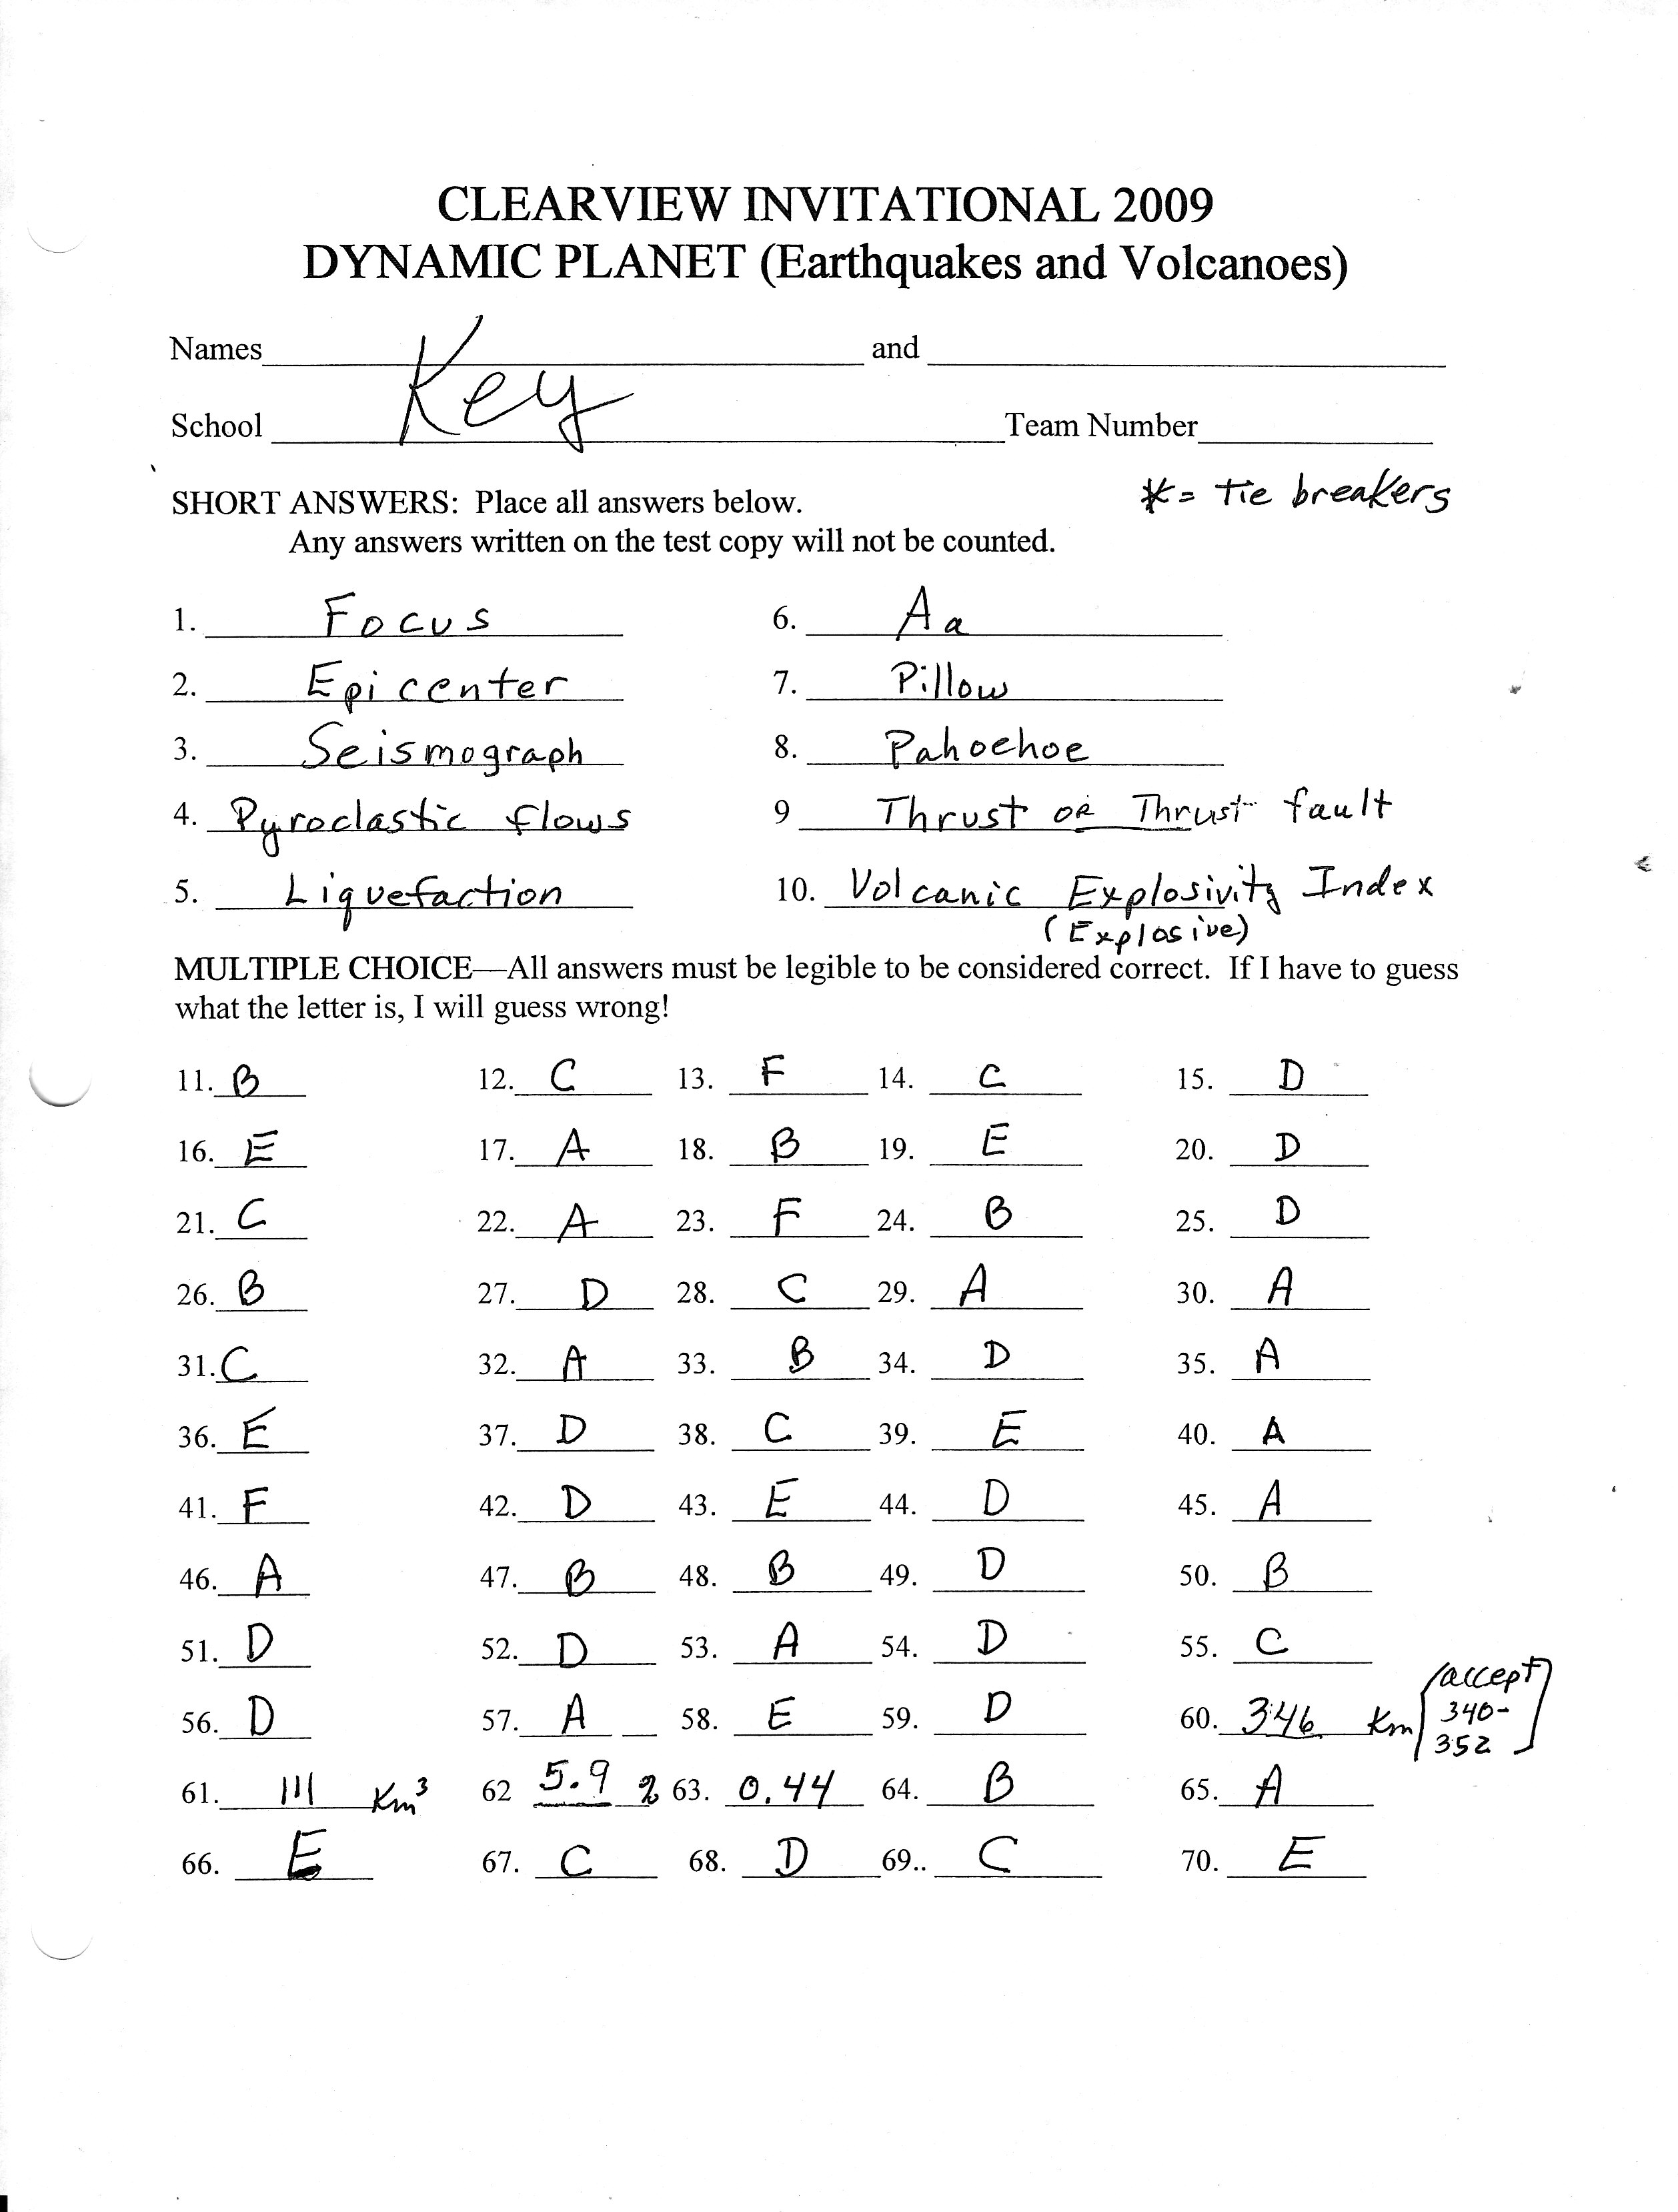 CLEARVIEW INVITATIONAL 2009
DYNAMIC PLANET (Earthquakes and Volcanoes)
Names and
Key
School Team Number
SHORT ANSWERS: Place all answers below. * = tie breakers
Any answers written on the test copy will not be counted.
1. Focus 6. Aa
2. Epicenter 7. Pillow
3. Seismograph 8. Pahoehoe
4. Pyroclastic flows 9 Thrust or Thrust fault
5. Liquefaction 10. Volcanic Explosivity Index
(Explosive)
MULTIPLE CHOICE—All answers must be legible to be considered correct. If I have to guess
what the letter is, I will guess wrong!
11. B 12. C 13. F 14. C 15. D
16. E 17. A 18. B 19. E 20. D
21. C 22. A 23. F 24. B 25. D
26. B 27. D 28. C 29. A 30. A
31. C 32. A 33. B 34. D 35. A
36. E 37. D 38. C 39. E 40. A
41. F 42. D 43. E 44. D 45. A
46. A 47. B 48. B 49. D 50. B
51. D 52. D 53. A 54. D 55. C
56. D 57. A 58. E 59. D 60. 346 Km [accept 340-352]
61. 111 Km³ 62 5.9 % 63. 0.44 64. B 65. A
66. E 67. C 68. D 69.. C 70. E